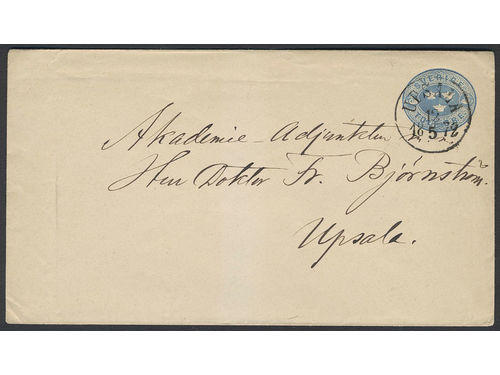 SVERIGE
UPSALA
12
5
Akademie-Adjunkten
Herr Doktor Fr. Björnström.
Upsala.